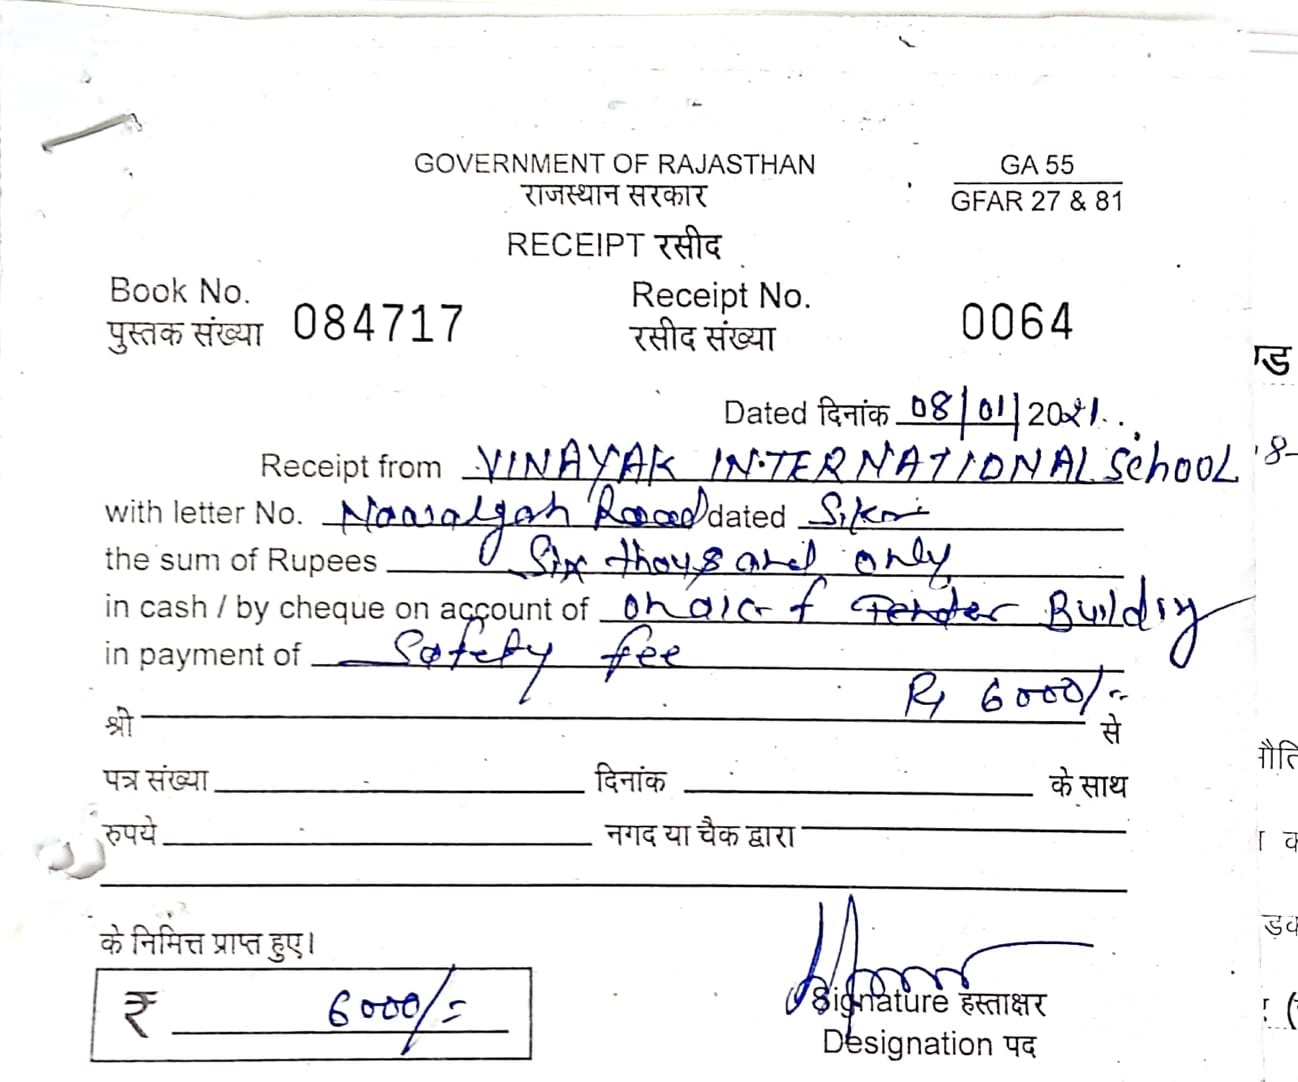 GOVERNMENT OF RAJASTHAN
राजस्थान सरकार
GA 55
GFAR 27 & 81
RECEIPT रसीद
Book No.
पुस्तक संख्या 084717
Receipt No.
रसीद संख्या 0064
Dated दिनांक 08/01/2021
Receipt from VINAYAK INTERNATIONAL School
with letter No. Road dated Sikri
the sum of Rupees Six thousand only
in cash / by cheque on account of Building
in payment of Safety fee
Rs 6000/=
श्री से
पत्र संख्या दिनांक के साथ
रुपये नगद या चैक द्वारा
के निमित्त प्राप्त हुए।
₹ 6000/=
Signature हस्ताक्षर
Designation पद